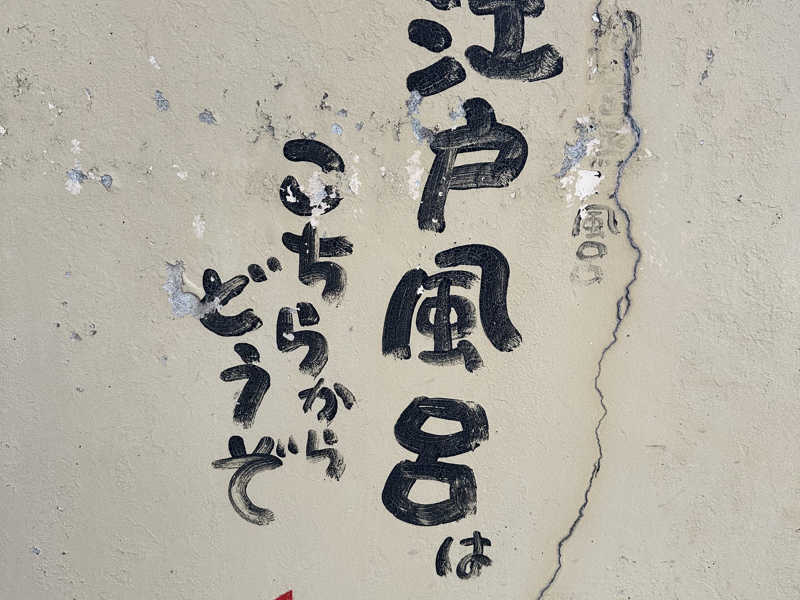 江戸風呂は
こちらから
どうぞ